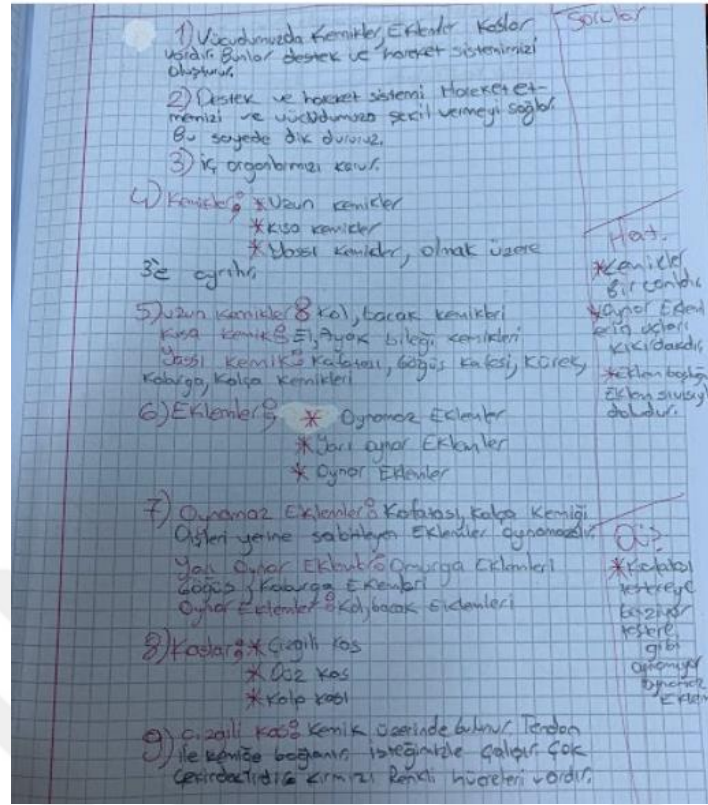 1) Vücudumuzda Kemikler, Eklemler Kaslar
vardır. Bunlar destek ve hareket sistemimizi
oluşturur.
2) Destek ve hareket sistemi Hareket et-
memizi ve vücudumuza şekil vermeyi sağlar.
Bu sayede dik dururuz.
3) iç organlarımızı korur.
4) Kemikler: * Uzun kemikler
* Kısa kemikler
* Yassı kemikler, olmak üzere
3'e ayrılır.
5) Uzun kemikler: Kol, bacak kemikleri
Kısa kemik: El, Ayak bileği kemikleri
Yassı kemik: Kafatası, Göğüs kafesi, Kürek,
Kaburga, Kalça kemikleri
6) Eklemler: * Oynamaz Eklemler
* Yarı oynar Eklemler
* Oynar Eklemler
7) Oynamaz Eklemler: Kafatası, Kalça Kemiği
Dişleri yerine sabitleyen Eklemler oynamazdır.
Yarı Oynar Eklemler: Omurga Eklemleri
Göğüs, Kaburga Eklemleri
Oynar Eklemler: Kol, bacak Eklemleri
8) Kaslar: * Çizgili kas
* Düz kas
* Kalp kası
9) Çizgili kas: Kemik üzerinde bulunur. Tendon
ile kemiğe bağlanır. isteğimizle çalışır. Çok
çekirdeklidir. Kırmızı Renkli hücreleri vardır.
Sorular
Hat.
* Kemikler
Bir canlıdır
* Oynar Eklem
lerin uçları
kıkırdakdır
* Eklem boşluğu
Eklem sıvısıyl
doludur.
* Kafatası
testereye
benziyor
testere
gibi
oynamıyor
oynamaz
Eklem